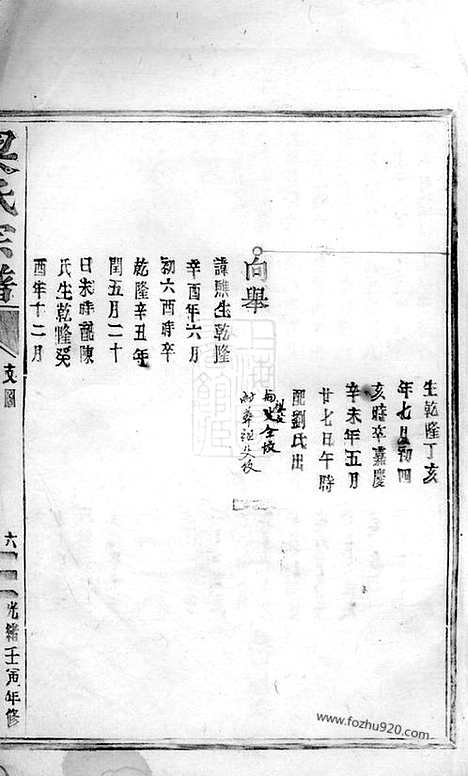 生乾隆丁亥
年七月初四
亥時卒嘉慶
辛未年五月
廿七日午時
配劉氏出
附葬祖父坟
向舉
諱生乾隆
辛酉年六月
初六酉時卒
乾隆辛丑年
閏五月二十
日未時配陳
氏生乾隆癸
酉年十二月
氏宗譜
支圖
六
光緒壬寅年修
www.fozhu920.com